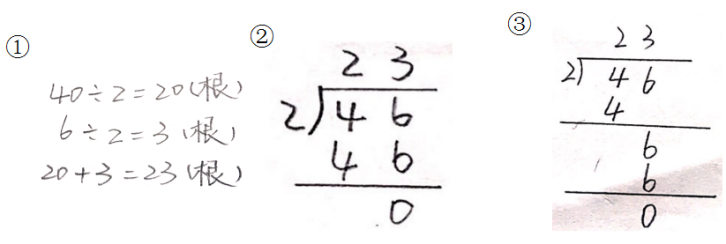 ①
40÷2=20(根)
6÷2=3(根)
20+3=23(根)
②
2 3
2)4 6
4 6
0
③
2 3
2)4 6
4
6
6
0